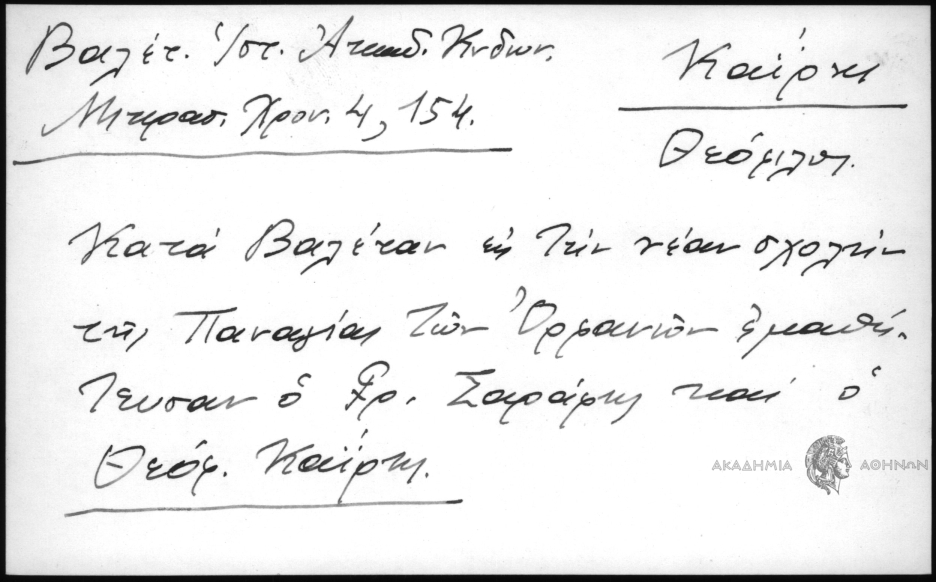 Βαλέτ. Ἱστ. Ἀκαδ. Κυδων.
Μικρασ. Χρον. 4, 154.
Καΐρης
Θεόφιλος.
Κατά Βαλέταν εἰς τὴν νέαν σχολὴν
τῆς Παναγίας τῶν Ὀρφανῶν ἐμαθή-
τευσαν ὁ Γρ. Σαράφης καὶ ὁ
Θεόφ. Καΐρης.
ΑΚΑΔΗΜΙΑ ΑΘΗΝΩΝ